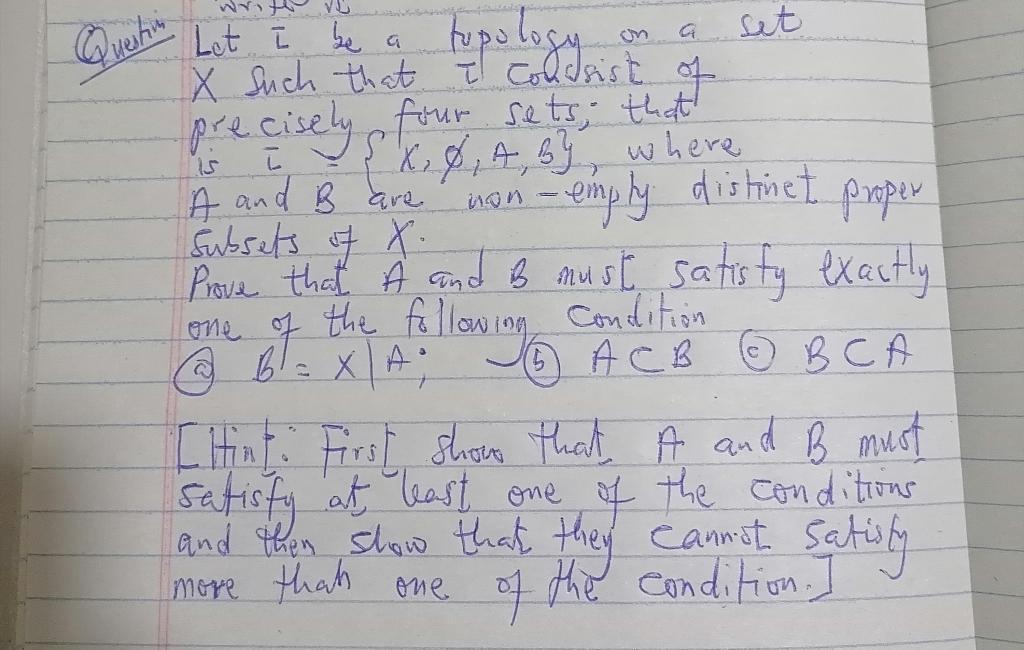 write it
Question Let τ be a topology on a set
X such that τ consist of
precisely four sets; that
is τ = {X, Ø, A, B}, where
A and B are non-empty distinct proper
subsets of X.
Prove that A and B must satisfy exactly
one of the following condition
ⓐ B = X|A; ⓑ A⊂B ⓒ B⊂A
[Hint: First show that A and B must
satisfy at least one of the conditions
and then show that they cannot satisfy
more than one of the condition.]